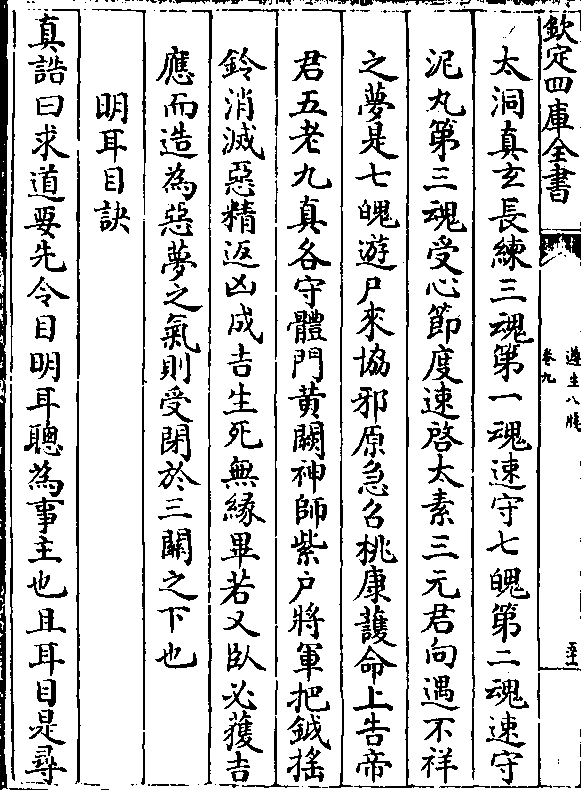 欽定四庫全書
遵生八牋
卷九
太洞真玄長練三魂第一魂速守七魄第二魂速守
泥丸第三魂受心節度速啓太素三元君向遇不祥
之夢是七魄遊尸來協邪原急召桃康護命上告帝
君五老九真各守體門黄闕神師紫户將軍把鉞揺
鈴消滅惡精返凶成吉生死無緣畢若又臥必獲吉
應而造為惡夢之氣則受閉於三關之下也
明耳目訣
真誥曰求道要先令目明耳聰為事主也且耳目是尋